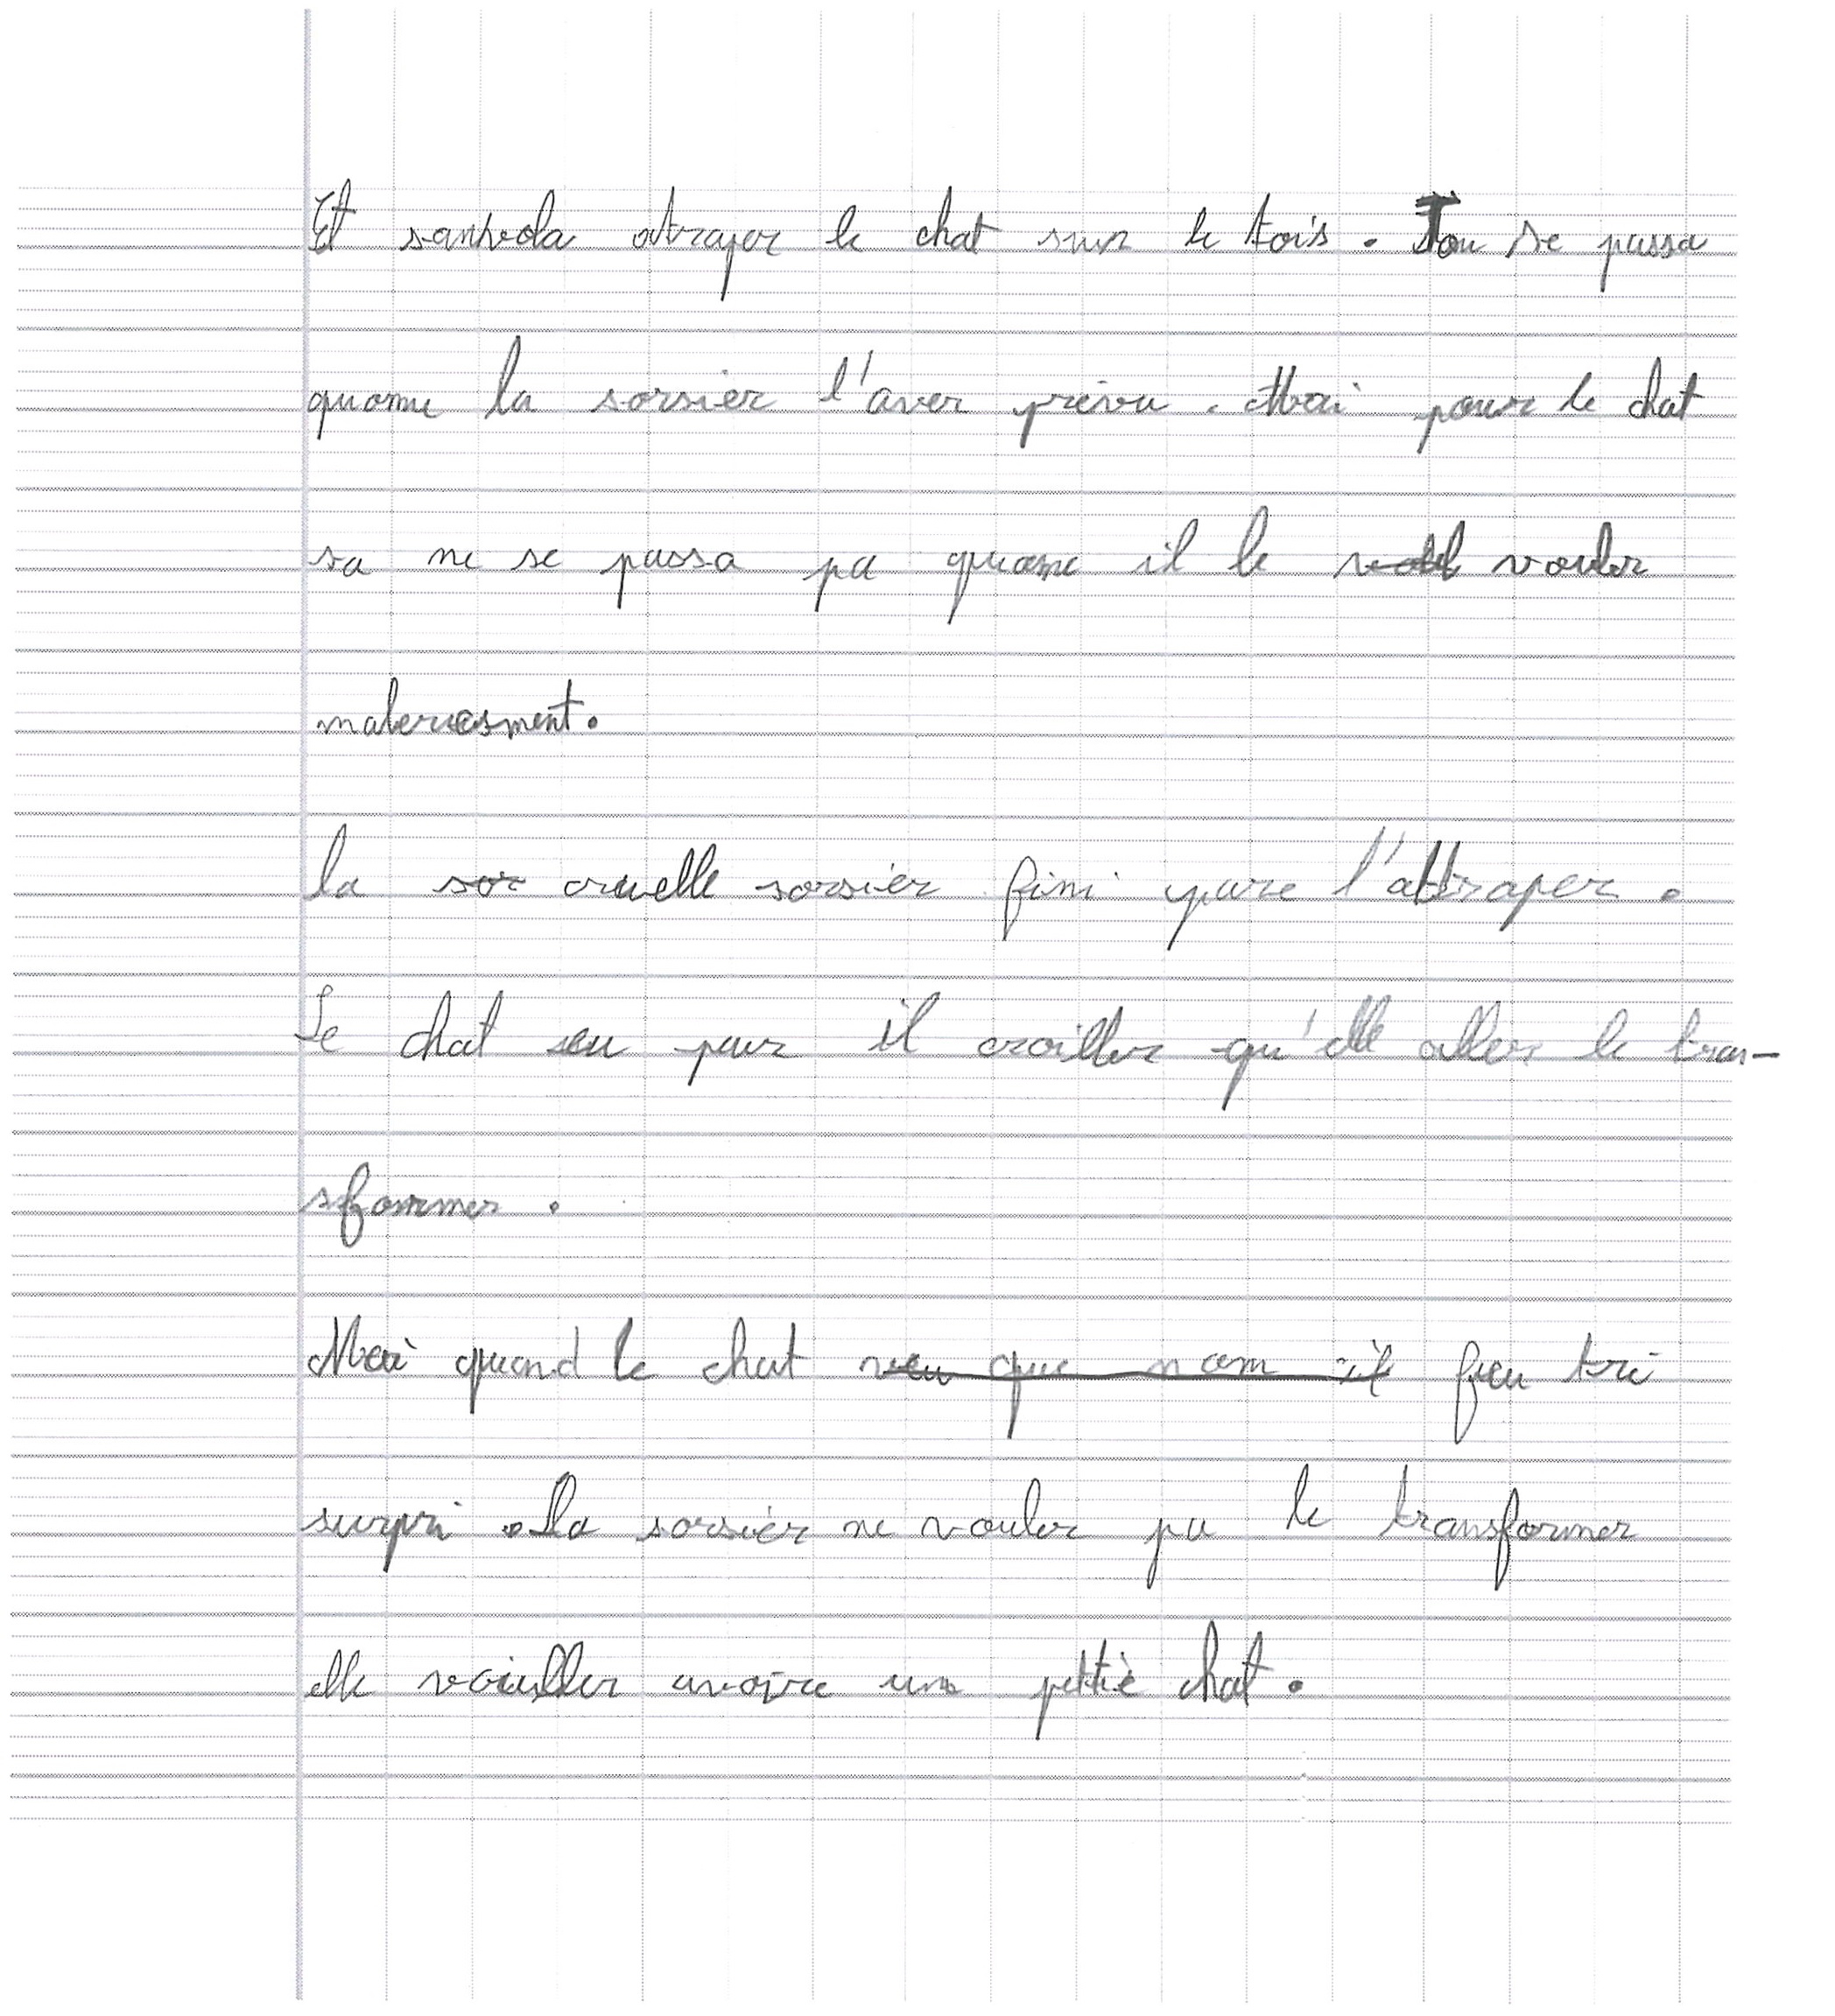 Et sanvola atraper le chat sur le tois. Tou se passa
quome la sorsier l'aver prévu. Mai pour le chat
sa ne se passa pa quome il le vouler
malereusment.
la sor cruelle sorsier fini pare l'attraper.
Le chat eu peur il croiller qu'elle aller le tran-
sformer.
Mai quand le chat veu que nom il feu tri
surpri. La sorsier ne vouler pa le transformer
elle vouiller avoire un petitè chat.